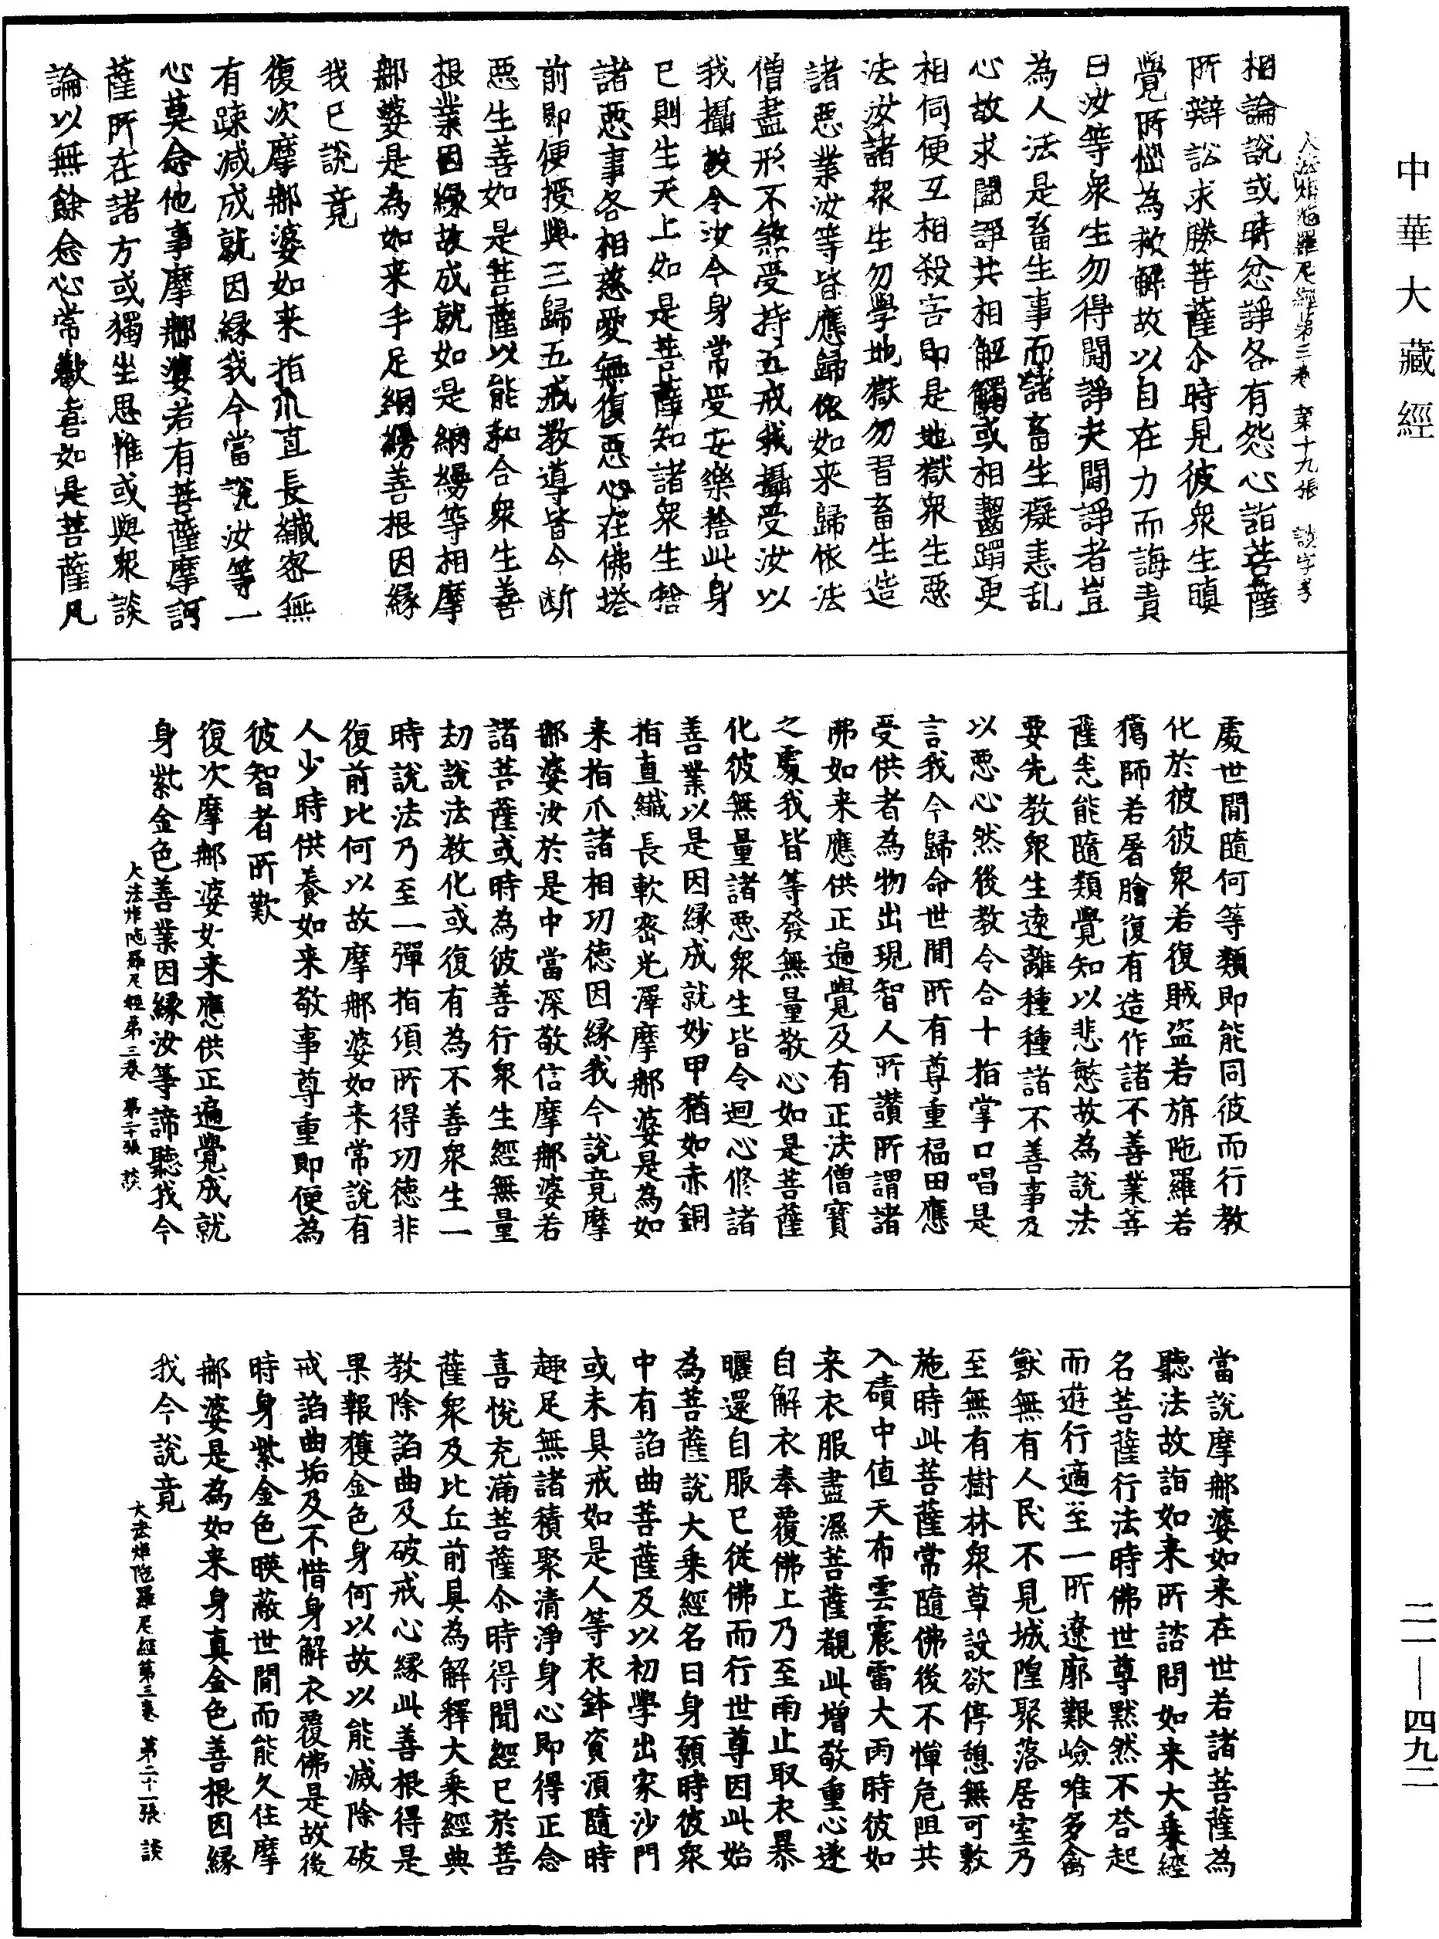 中華大藏經
大法炬陁羅尼經第三卷 第十九張 談字号
相論說或時忿諍各有怨心詣菩薩
所辯訟求勝菩薩尒時見彼衆生瞋
覺所惱為救解故以自在力而誨責
曰汝等衆生勿得鬪諍夫鬪諍者豈
為人法是畜生事而諸畜生癡恚乱
心故求鬪諍共相觝觸或相齧蹋更
相伺便互相殺害即是地獄衆生惡
法汝諸衆生勿學地獄勿習畜生造
諸惡業汝等皆應歸依如來歸依法
僧盡形不煞受持五戒我攝受汝以
我攝故令汝今身常受安樂捨此身
已則生天上如是菩薩知諸衆生捨
諸惡事各相慈愛無復惡心在佛塔
前即便授與三歸五戒教導皆令斷
惡生善如是菩薩以能和合衆生善
根業因緣故成就如是網縵等相摩
那婆是為如来手足網縵善根因緣
我已說竟
復次摩那婆如来指爪直長纖密無
有踈減成就因緣我今當說汝等一
心莫念他事摩那婆若有菩薩摩訶
薩所在諸方或獨坐思惟或與衆談
論以無餘念心常歡喜如是菩薩凡
處世間隨何等類即能同彼而行教
化於彼彼衆若復賊盗若旃陁羅若
獦師若屠膾復有造作諸不善業菩
薩悉能隨類覺知以悲愍故為說法
要先教衆生遠離種種諸不善事及
以惡心然後教令合十指掌口唱是
言我今歸命世間所有尊重福田應
受供者為物出現智人所讃所謂諸
佛如来應供正遍覺及有正法僧寳
之處我皆等發無量敬心如是菩薩
化彼無量諸惡衆生皆令迴心修諸
善業以是因緣成就妙甲猶如赤銅
指直纖長軟密光澤摩那婆是為如
来指爪諸相功德因緣我今說竟摩
那婆汝於是中當深敬信摩那婆若
諸菩薩或時為彼善行衆生經無量
劫說法教化或復有為不善衆生一
時說法乃至一彈指頃所得功德非
復前比何以故摩那婆如来常說有
人少時供養如来敬事尊重即便為
彼智者所歎
復次摩那婆如来應供正遍覺成就
身紫金色善業因緣汝等諦聽我今
大法炬陁羅尼經第三卷 第二十張 談
當說摩那婆如来在世若諸菩薩為
聽法故詣如来所諮問如来大乗經
名菩薩行法時佛世尊默然不荅起
而遊行適至一所遼廓艱嶮唯多禽
獸無有人民不見城隍聚落居室乃
至無有樹林衆草設欲停憩無可敷
施時此菩薩常隨佛後不憚危阻共
入磧中值天布雲震雷大雨時彼如
来衣服盡濕菩薩覩此增敬重心遂
自解衣奉覆佛上乃至雨止取衣暴
曬還自服已從佛而行世尊因此始
為菩薩說大乗經名曰身願時彼衆
中有諂曲菩薩及以初學出家沙門
或未具戒如是人等衣鉢資湏隨時
趣足無諸積聚清淨身心即得正念
喜悅充滿菩薩尒時得聞經已於菩
薩衆及比丘前具為解釋大乗經典
教除諂曲及破戒心緣此善根得是
果報獲金色身何以故以能滅除破
戒諂曲垢及不惜身解衣覆佛是故後
時身紫金色暎蔽世間而能久住摩
那婆是為如来身真金色善根因緣
我今說竟
大法炬陁羅尼經第三卷 第二十一張 談
二一—四九二